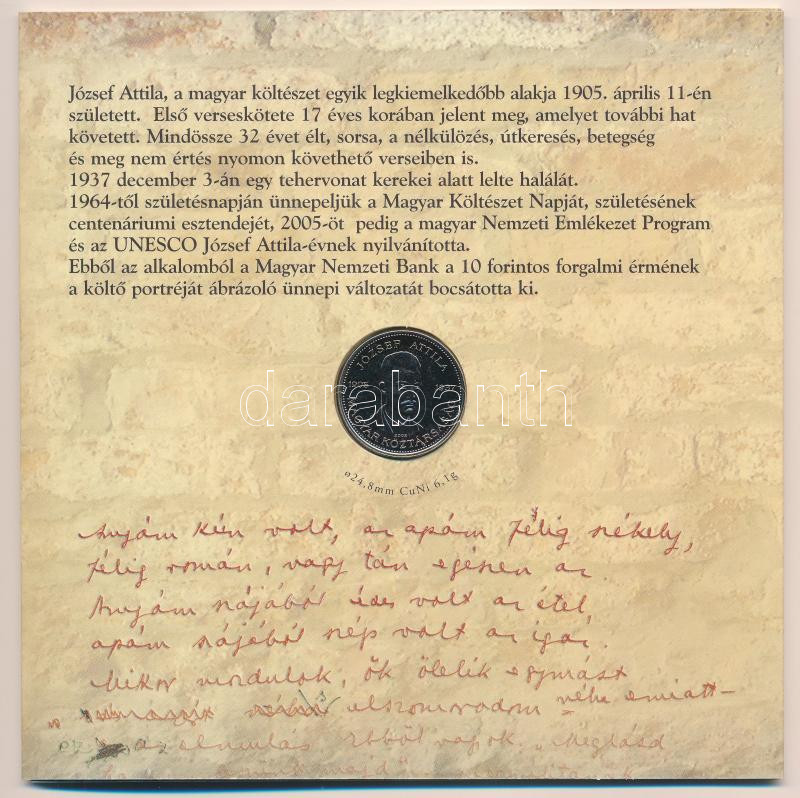 József Attila, a magyar költészet egyik legkiemelkedőbb alakja 1905. április 11-én
született.  Első verseskötete 17 éves korában jelent meg, amelyet további hat
követett. Mindössze 32 évet élt, sorsa, a nélkülözés, útkeresés, betegség
és meg nem értés nyomon követhető verseiben is.
1937 december 3-án egy tehervonat kerekei alatt lelte halálát.
1964-től születésnapján ünnepeljük a Magyar Költészet Napját, születésének
centenáriumi esztendejét, 2005-öt  pedig a magyar Nemzeti Emlékezet Program
és az UNESCO József Attila-évnek nyilvánította.
Ebből az alkalomból a Magyar Nemzeti Bank a 10 forintos forgalmi érmének
a költő portréját ábrázoló ünnepi változatát bocsátotta ki.
JÓZSEF ATTILA
1905 1937
darabanth
2005
MAGYAR KÖZTÁRSASÁG
ø24,8mm CuNi 6,1g
Anyám kún volt, az apám félig székely,
félig román, vagy tán egészen az.
Anyám szájából édes volt az étel,
apám szájából szép volt az igaz.
Mikor mozdulok, ők ölelik egymást
elszomorodom néha emiatt –
ez az elmulás. Ebből vagyok. „Meglásd